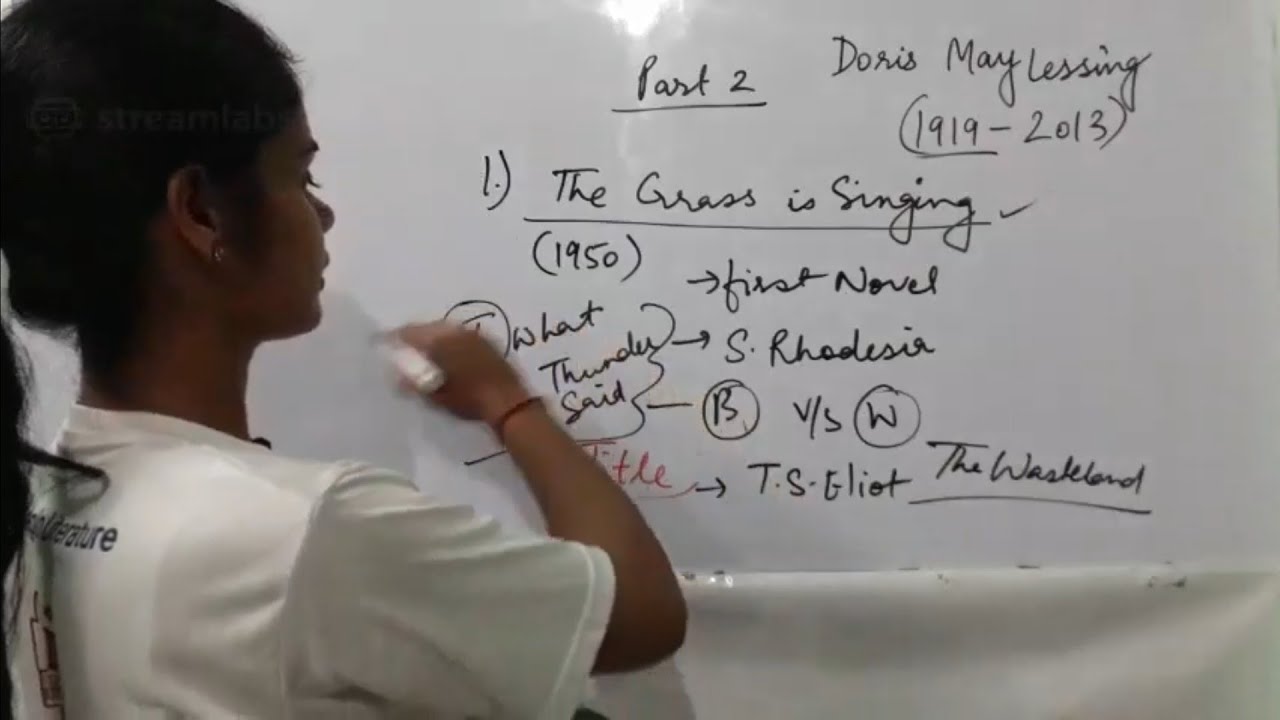 streamlab
Part 2
Doris May Lessing
(1919 - 2013)
1.) The Grass is Singing ✓
(1950)
→ first Novel
What
Thunder
Said
→ S. Rhodesia
B v/s W
Title → T.S. Eliot The Wasteland
Literature